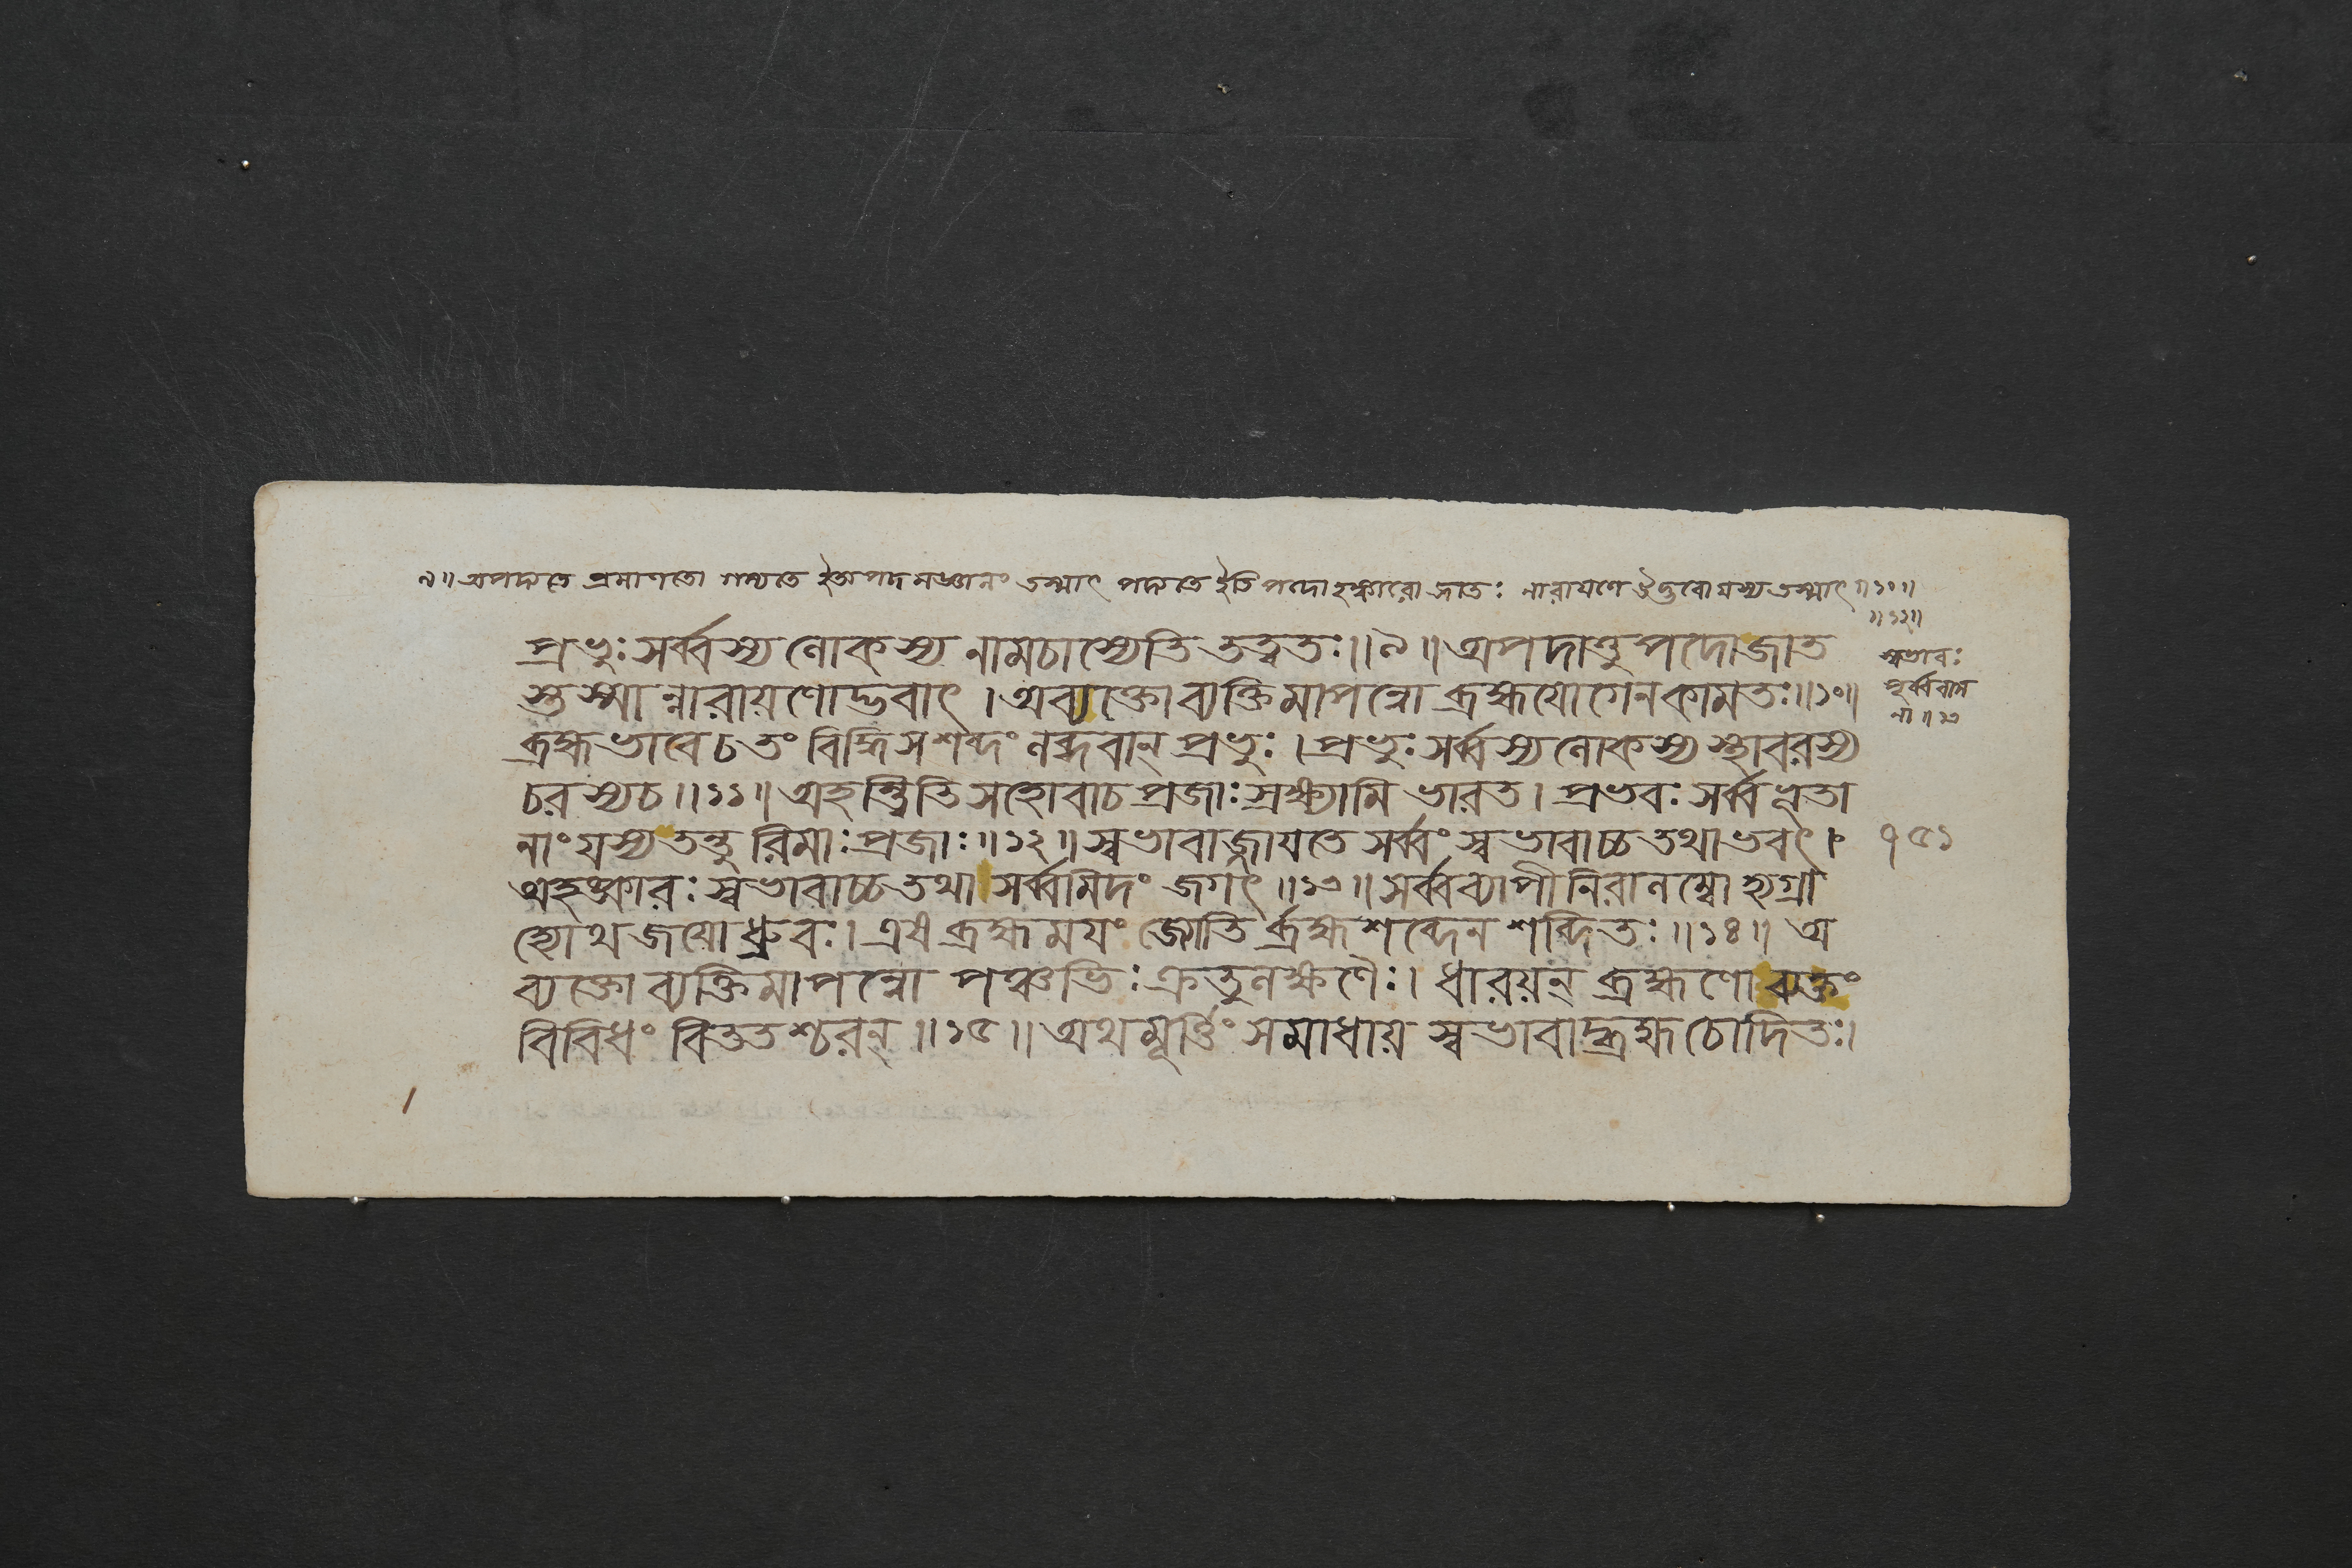 ৯॥ অপদ্যতে প্রমাণতো গম্যতে ইতি অপদমজ্ঞানং তস্মাৎ পদ্যতে ইতি পদোঽহঙ্কারো জাতঃ নারায়ণে উদ্ভবো যস্য তস্মাৎ॥১০॥
॥১২॥
প্রভুঃ সর্ব্বস্য লোকস্য নামচাস্যেতি তত্ত্বতঃ॥৯॥ অপদাত্তু পদোজাত
স্তস্মান্নারায়ণোদ্ভবাৎ । অব্যক্তোব্যক্তিমাপন্নো ব্রহ্মযোগেনকামতঃ॥১০॥
ব্রহ্মভাবেচ তং বিদ্ধি সশব্দং লব্ধবান্ প্রভুঃ । প্রভুঃ সর্ব্বস্যলোকস্য স্থাবরস্য
চরস্যচ॥১১॥ অহন্ত্বিতি সহোবাচ প্রজাঃ স্রক্ষ্যামি ভারত। প্রভবঃ সর্ব্বভূতা
নাং যস্য তন্তুরিমাঃ প্রজাঃ॥১২॥ স্বভাবাজ্জায়তে সর্ব্বং স্বভাবাচ্চ তথাভবৎ।
অহঙ্কারঃ স্বভাবাচ্চ তথা সর্ব্বমিদং জগৎ॥১৩॥ সর্ব্বব্যাপীনিরালম্বোহ্যগ্রা
হ্যোথজয়োধ্রুবঃ। এষ ব্রহ্মময়ং জ্যোতির্ব্রহ্মশব্দেন শব্দিতঃ॥১৪॥ অ
ব্যক্তোব্যক্তিমাপন্নো পঞ্চভিঃ ক্রতুলক্ষণৈঃ। ধারয়ন্ ব্রহ্মণোব্যক্তং
বিবিধং বিততশ্চরন্॥১৫॥ অথমূর্ত্তিং সমাধায় স্বভাবাদ্ব্রহ্মচোদিতঃ।
স্বভাবঃ
পূর্ব্ববাস
না॥১৩
১৫১